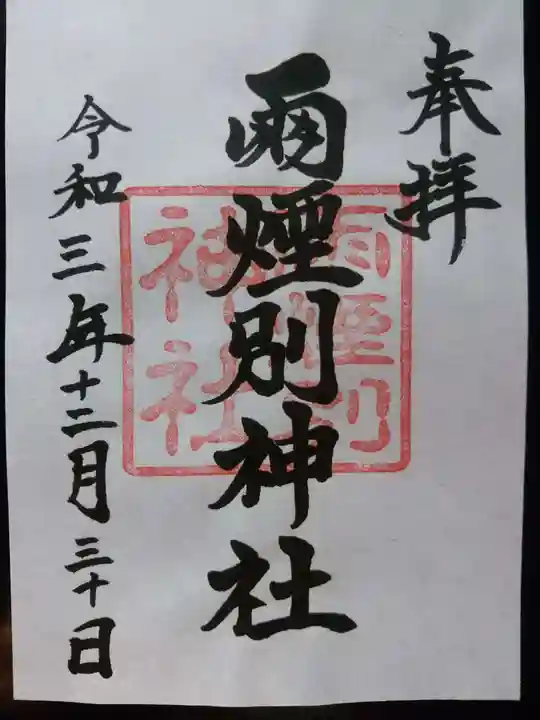 奉拝
雨煙別神社
雨煙別
神社
令和三年十二月三十日